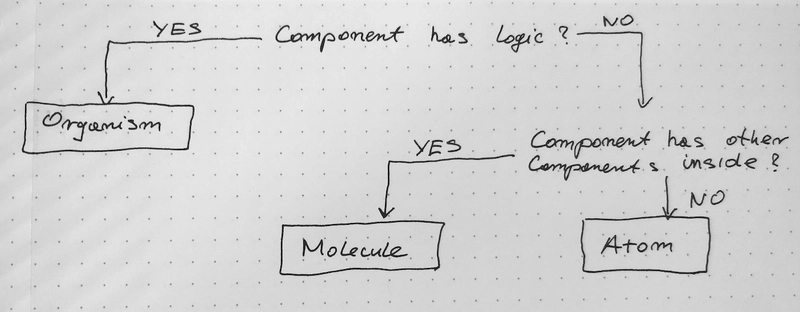 YES
Component has Logic?
NO
Organism
YES
Component has other
Components inside?
NO
Molecule
Atom